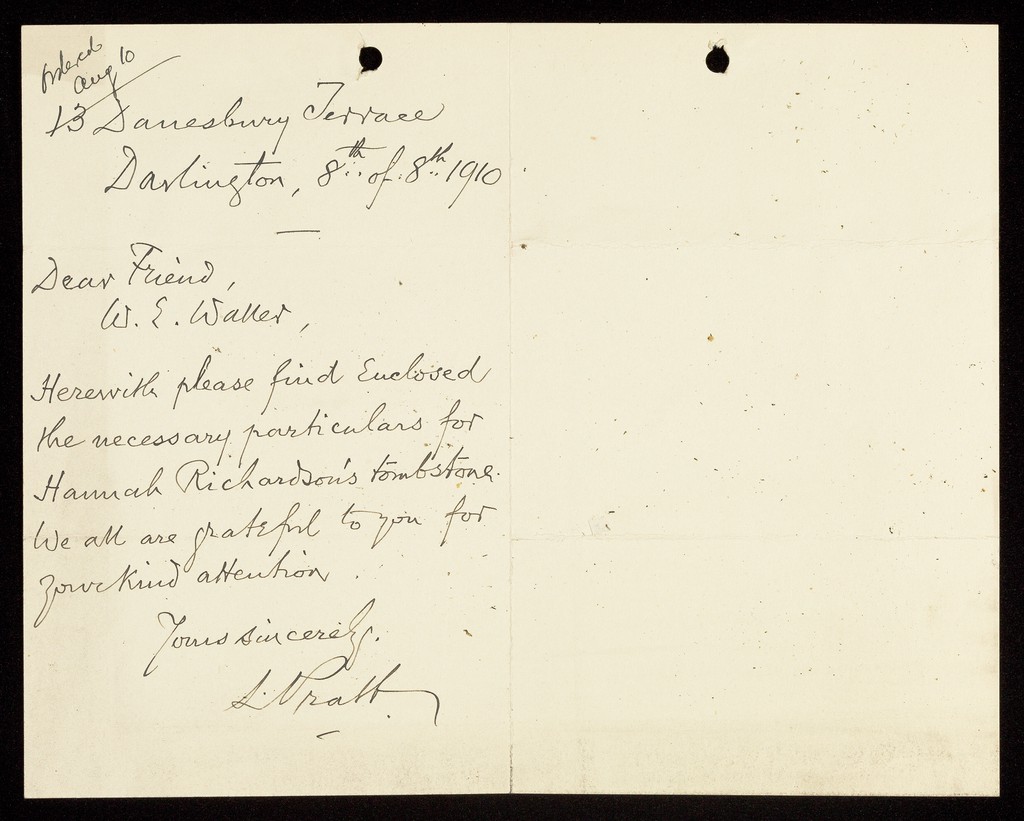 Ordered
Aug 10
13 Danesbury Terrace
Darlington, 8th of 8th 1910
Dear Friend,
W. E. Waller,
Herewith please find Enclosed
the necessary particulars for
Hannah Richardson's tombstone.
We all are grateful to you for
your kind attention.
Yours sincerely.
L. Pratt.